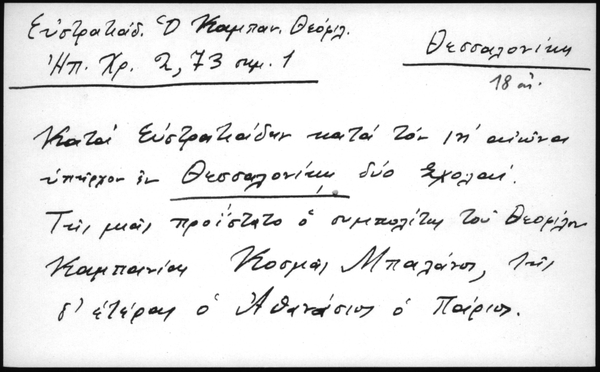 Εὐστρατιάδ. Ὁ Καμπαν. Θεόφιλ.
Ἠπ. Χρ. 2, 73 σημ. 1
Θεσσαλονίκη
18 αἰ.
Κατά Εὐστρατιάδην κατά τόν ιη' αἰῶνα
ὑπῆρχον ἐν Θεσσαλονίκῃ δύο Σχολαί.
Τῆς μιᾶς προΐστατο ὁ συμπολίτης τοῦ Θεοφίλου
Καμπανίας Κοσμᾶς Μπαλάνος, τῆς
δ' ἑτέρας ὁ Ἀθανάσιος ὁ Πάριος.